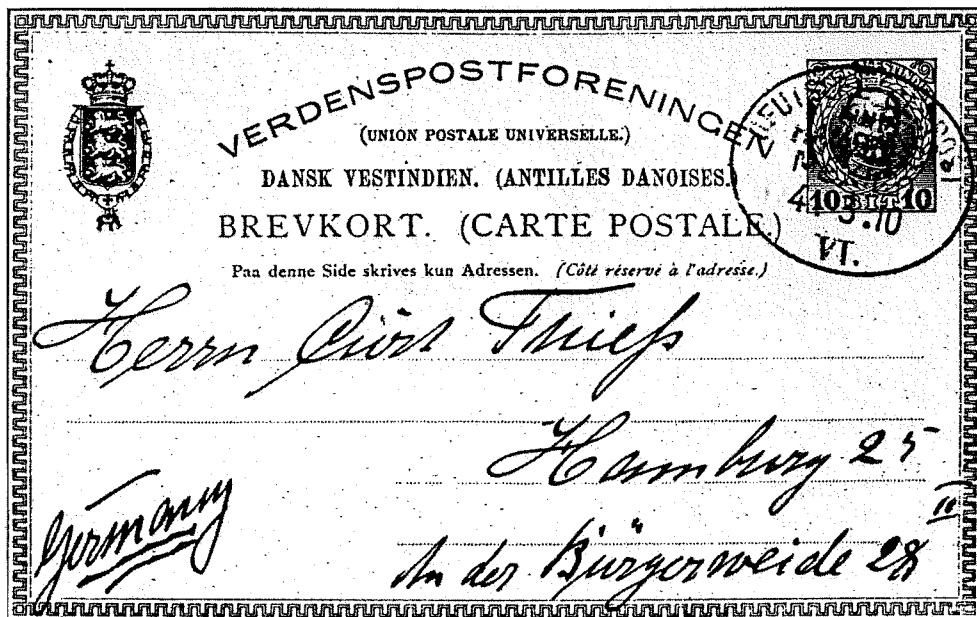 VERDENSPOSTFORENINGEN
(UNION POSTALE UNIVERSELLE.)
DANSK VESTINDIEN. (ANTILLES DANOISES.)
BREVKORT. (CARTE POSTALE.)
10 BIT 10
VT.
Paa denne Side skrives kun Adressen. (Côté réservé à l'adresse.)
Herrn Cürt Thieß
Hamburg 25
Germany
An der Bürgerweide 28 II